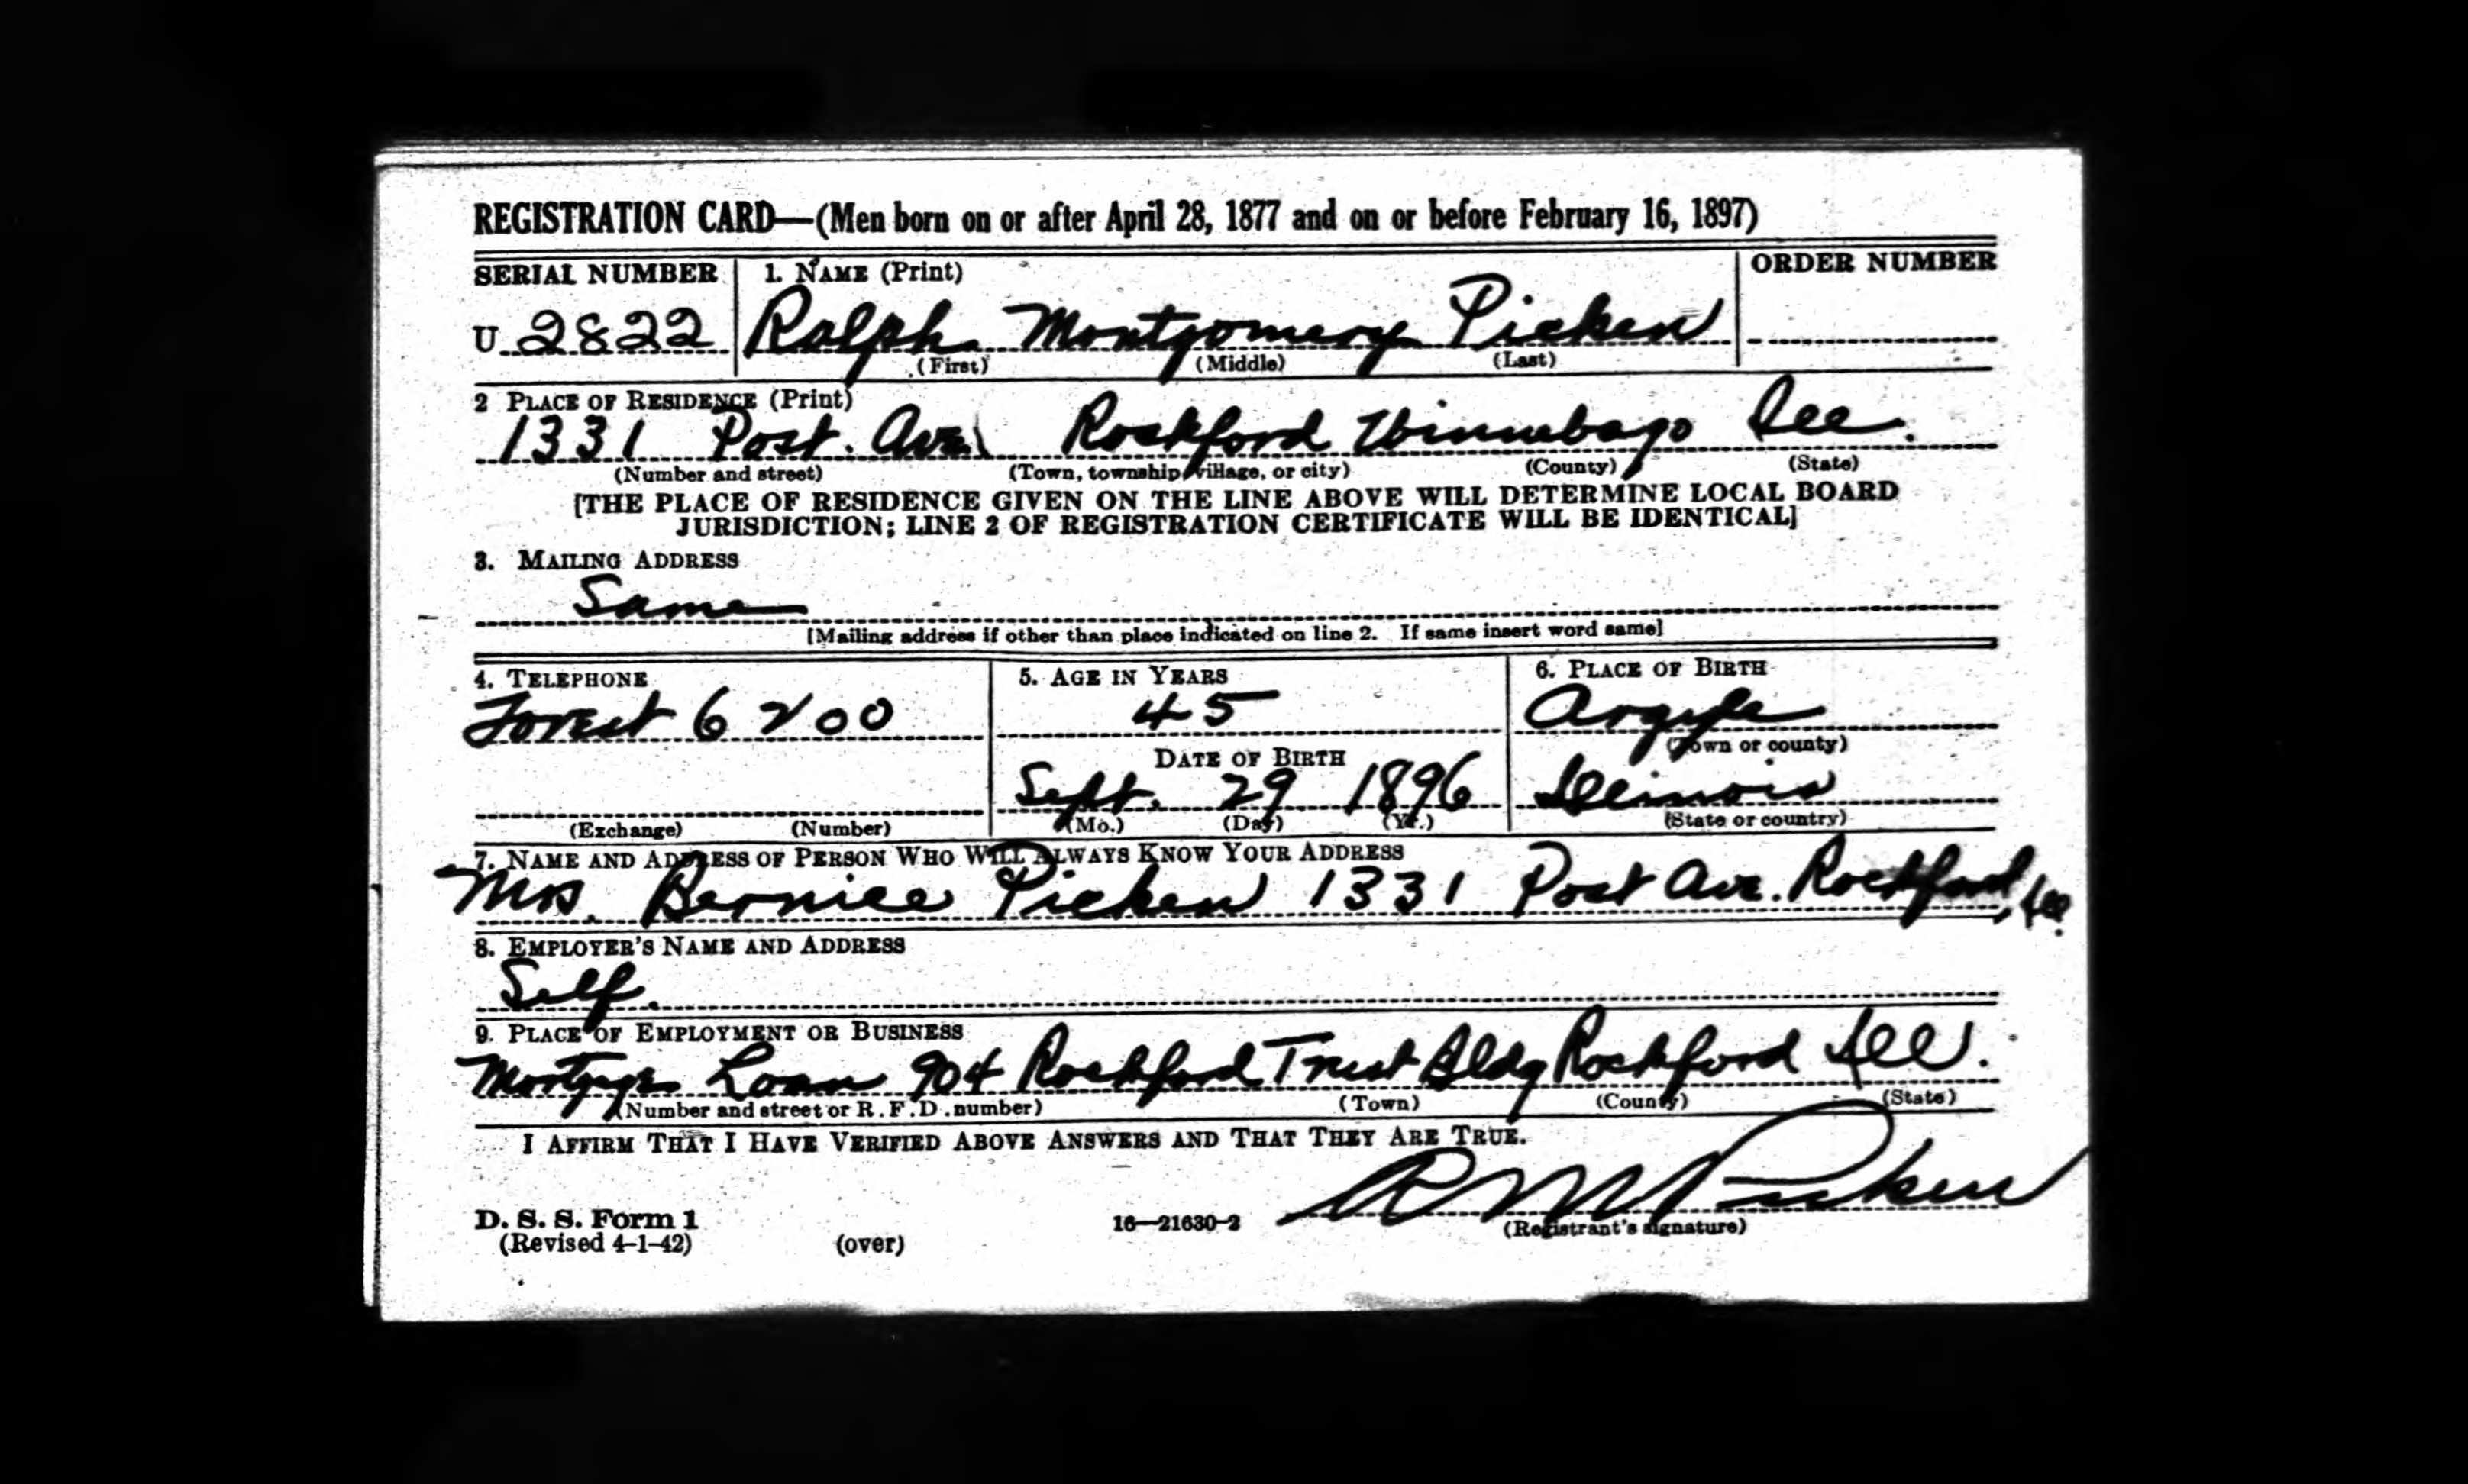 REGISTRATION CARD—(Men born on or after April 28, 1877 and on or before February 16, 1897)
SERIAL NUMBER 1. NAME (Print) ORDER NUMBER
U 2822 Ralph Montgomery Picken
(First) (Middle) (Last)
2 PLACE OF RESIDENCE (Print)
1331 Post. Ave. Rockford Winnebago Ill.
(Number and street) (Town, township, village, or city) (County) (State)
[THE PLACE OF RESIDENCE GIVEN ON THE LINE ABOVE WILL DETERMINE LOCAL BOARD
JURISDICTION; LINE 2 OF REGISTRATION CERTIFICATE WILL BE IDENTICAL]
3. MAILING ADDRESS
Same
[Mailing address if other than place indicated on line 2. If same insert word same]
4. TELEPHONE 5. AGE IN YEARS 6. PLACE OF BIRTH
Forest 6200 45 Argyle
DATE OF BIRTH (Town or county)
Sept. 29 1896 Illinois
(Exchange) (Number) (Mo.) (Day) (Yr.) (State or country)
7. NAME AND ADDRESS OF PERSON WHO WILL ALWAYS KNOW YOUR ADDRESS
Mrs. Bernice Picken 1331 Post Ave. Rockford, Ill.
8. EMPLOYER'S NAME AND ADDRESS
Self.
9. PLACE OF EMPLOYMENT OR BUSINESS
Mortgage Loan 904 Rockford Trust Bldg Rockford Ill.
(Number and street or R. F. D. number) (Town) (County) (State)
I AFFIRM THAT I HAVE VERIFIED ABOVE ANSWERS AND THAT THEY ARE TRUE.
R M Picken
D. S. S. Form 1
(Revised 4-1-42) (over) 16—21630-2 (Registrant's signature)